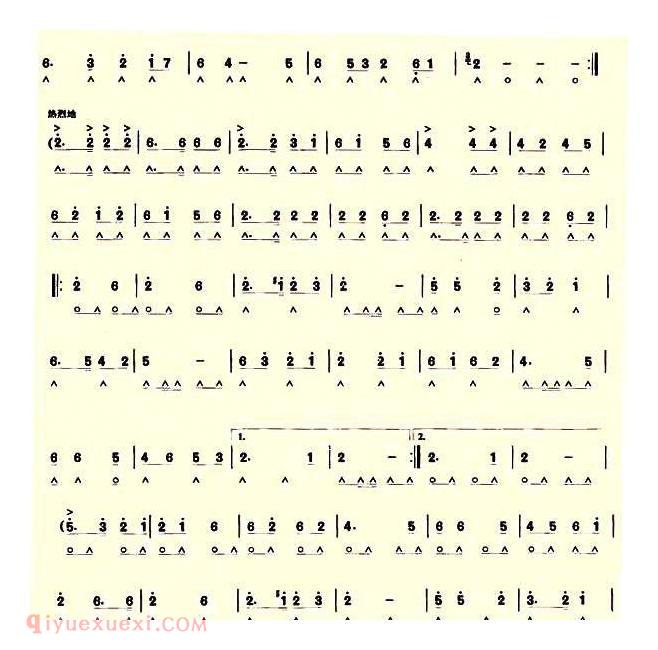 6. 3 2 1 7 | 6 4 – 5 | 6 5 3 2 6 1 | 2 – – – :||
^ ^ ^ ^ | ^ ^ ^ ^ | ^ ^ ^ ^ | ^ o ^ o
热烈地
(2. 2 2 2 | 6. 6 6 6 | 2. 2 3 1 | 6 1 5 6 | 4 4 4 | 4 2 4 5 |
6 2 1 2 | 6 1 5 6 | 2. 2 2 2 | 2 2 6 2 | 2. 2 2 2 | 2 2 6 2 |
||: 2 6 | 2 6 | 2. #1 2 3 | 2 – | 5 5 2 | 3 2 1 |
6. 5 4 2 | 5 – | 6 3 2 1 | 2 2 1 | 6 1 6 2 | 4. 5 |
1. 2.
6 6 5 | 4 6 5 3 | 2. 1 | 2 – :|| 2. 1 | 2 – |
(5. 3 2 1 | 2 1 6 | 6 2 6 2 | 4. 5 | 6 6 5 | 4 5 6 1 |
2 6. 6 | 2 6 | 2. #1 2 3 | 2 – | 5 5 2 | 3. 2 1 |
qiyuexuexi.COM